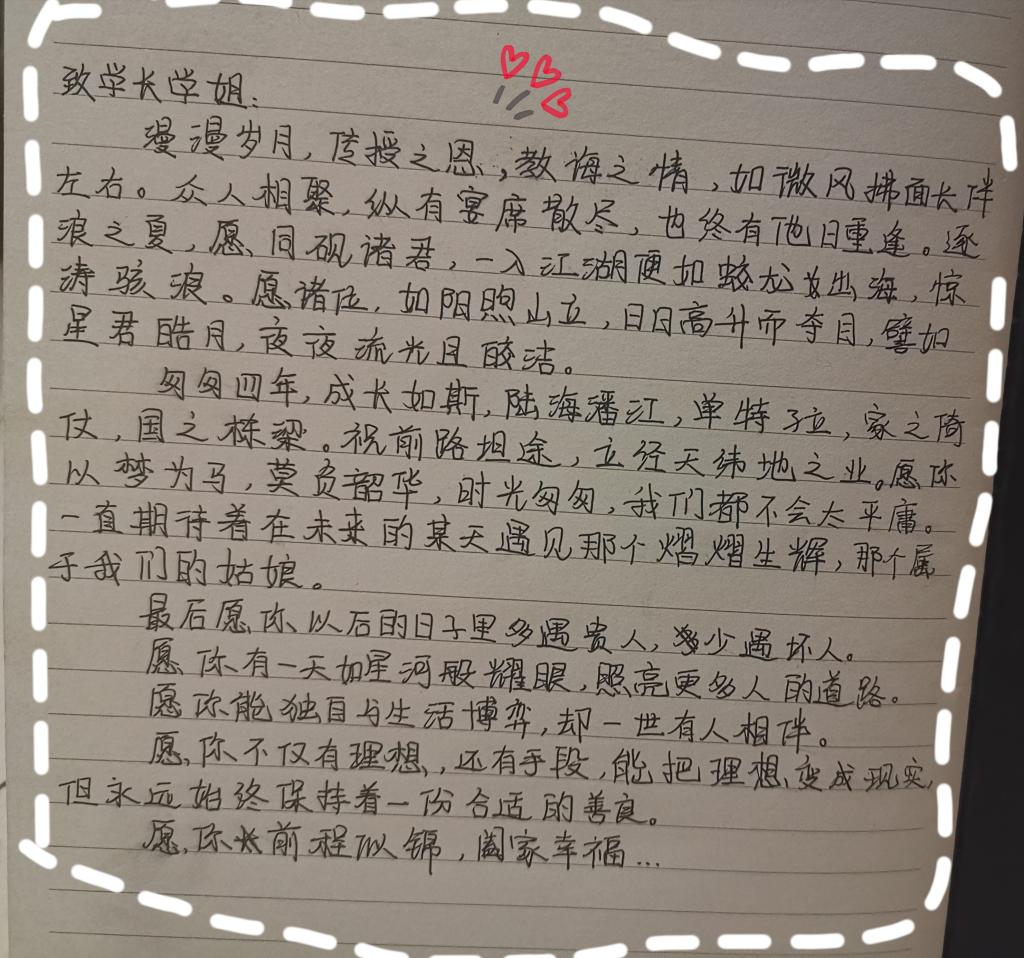 致学长学姐：
漫漫岁月，传授之恩，教诲之情，如微风拂面长伴
左右。众人相聚，纵有宴席散尽，也终有他日重逢。逐
浪之夏，愿同砚诸君，一入江湖便如蛟龙出海，惊
涛骇浪。愿诸位，如阳煦山立，日日高升而夺目，譬如
星君皓月，夜夜流光且皎洁。
匆匆四年，成长如斯，陆海潘江，单特孑立，家之倚
仗，国之栋梁。祝前路坦途，立经天纬地之业。愿你
以梦为马，莫负韶华，时光匆匆，我们都不会太平庸。
一直期待着在未来的某天遇见那个熠熠生辉，那个属
于我们的姑娘。
最后愿你以后的日子里多遇贵人，少遇坏人。
愿你有一天如星河般耀眼，照亮更多人的道路。
愿你能独自与生活博弈，却一世有人相伴。
愿你不仅有理想，还有手段，能把理想变成现实，
但永远始终保持着一份合适的善良。
愿你前程似锦，阖家幸福...